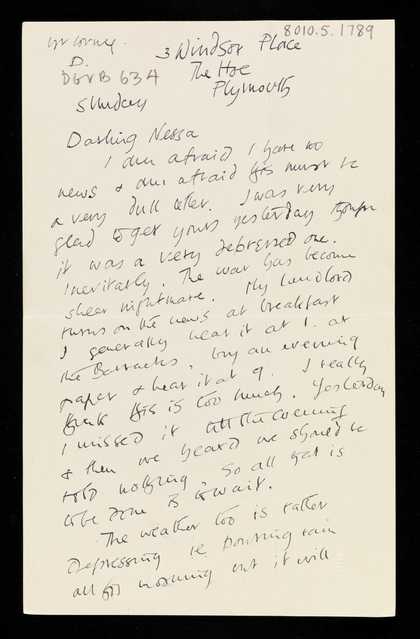 8010.5.1789
D.
DGVB 634
3 Windsor Place
The Hoe
Plymouth
Sunday
Darling Nessa
I am afraid I have no
news & am afraid this must be
a very dull letter. I was very
glad to get yours yesterday though
it was a very depressed one.
Inevitably. The war has become
sheer nightmare. My landlord
turns on the news at breakfast
I generally hear it at 1. at
the Barracks, buy an evening
paper & hear it at 9. I really
think this is too much. Yesterday
I missed it till the evening
& then we heard we should be
told nothing. So all that is
to be done is to wait.
The weather too is rather
depressing ie pouring rain
all this morning but it will